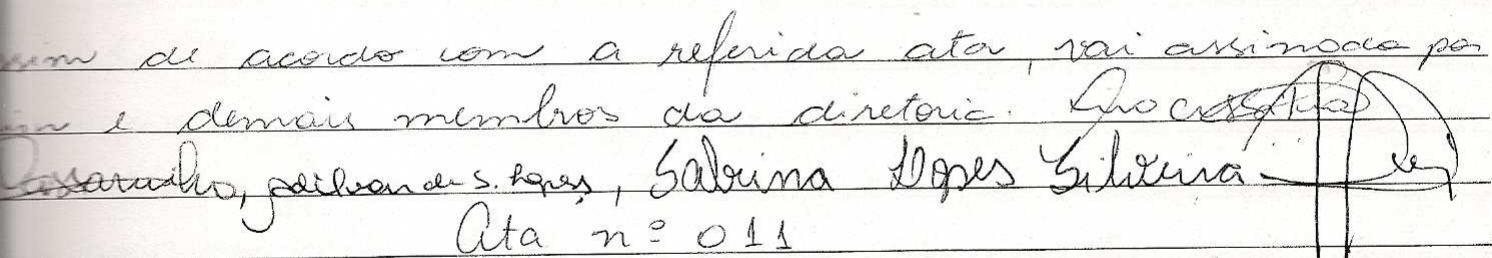 de acordo com a referida ata, vai assinada por
e demais membros da diretoria.
de S. Lopes, Sabrina Lopes Silveira
Ata nº 011